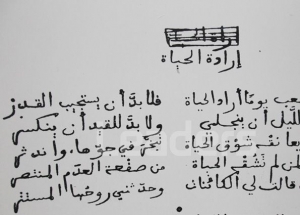 إرادة الحياة
إرادة الحياة
يومًا أراد الحياة فلا بدّ أن يستجيب القدر
الليل أن ينجلي ولا بدّ للقيد أن ينكسر
يعانقه شوق الحياة تبخّر في جوّها، واندثر
لم تشقه الحياة من صفعة العدم المنتصر
قالت لي الكائنات وحدثني روحها المستتر